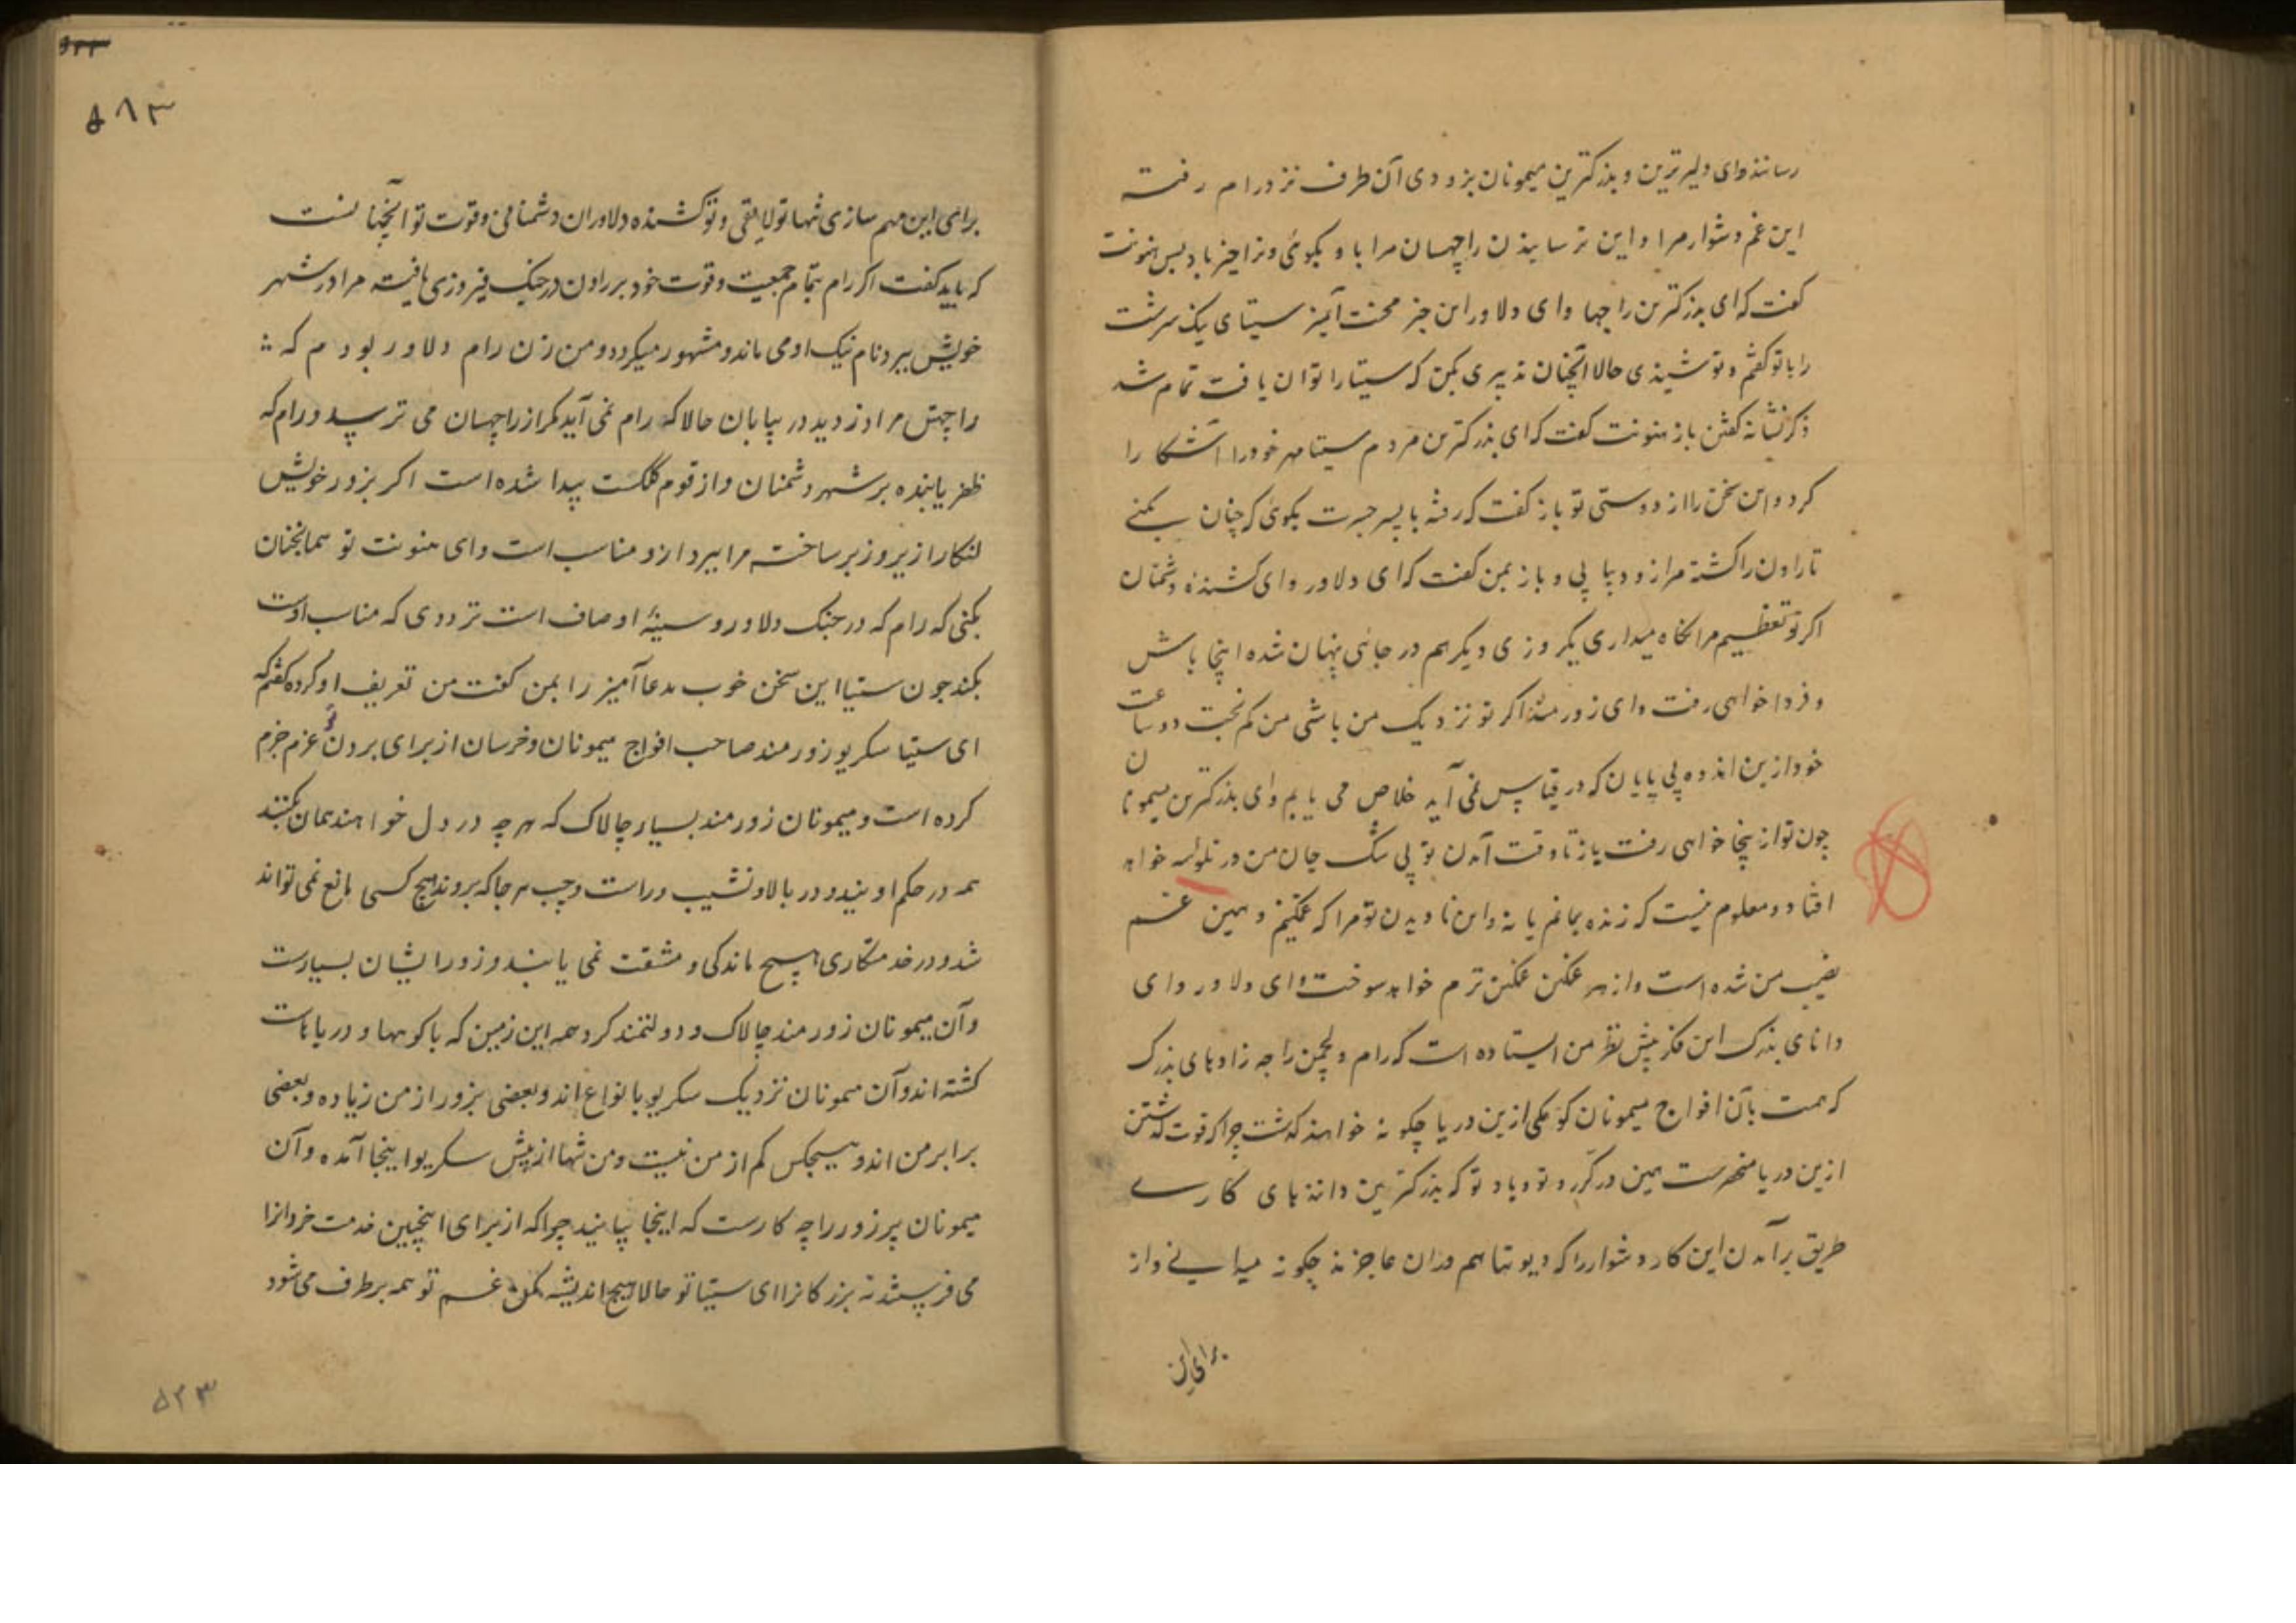 رسانند و ای دلیر ترین و بزرکترین میمونان بزودی آن طرف نزد رام رفته
این غم دشوار مرا و این ترسانیدن راچهسان مرا با و بکوئی و ترا خیر باد پس هنونت
کفت که ای بزرکترین راجها وای دلاور این خبر محنت آمیز سیتای نیک سرشت
را با تو کفتم و تو شنیدی حالا آنچنان تدبیری بکن که سیتا را توان یافت تمام شد
ذکر نشانه کفتن باز هنونت کفت که ای بزرکترین مردم سیتا مهر خود را آشکارا
کرد و این سخن را از دوستی تو باز کفت که رفته با پسر جسرت بکوی که چنان بکنے
تا راون را کشته مرا زود بیابی و باز بمن کفت که ای دلاور و ای کشنده دشمنان
اکر تو تعظیم مرا نکاه میداری یکروزی دیکر هم در جائی پنهان شده اینجا باش
و فردا خواهی رفت و ای زورمند اکر تو نزدیک من باشی من کم بخت دو ساعت
خود ازین اندوه بی پایان که در قیاس نمی آید خلاص می یابم و ای بزرکترین میمونان
چون تو ازینجا خواهی رفت باز تا وقت آمدن تو بی شک جان من در تلواسه خواهد
افتاد و معلوم نیست که زنده بمانم یا نه و این نادیدن تو مرا که غمکینم و همین غم
نصیب من شده است و از هر غمکین غمکین ترم خواهد سوخت و ای دلاور و ای
دانای بزرک این فکر پیش نظر من ایستاده است که رام و لچمن راجه زادهای بزرک
که هست بآن افواج میمونان کومکی ازین دریا چکونه خواهند کذشت چرا که قوت کذشتن
ازین دریا منحصرست همین در کرر و تو و باد تو که بزرکترین دانندهای کارے
طریق برآمدن این کار دشوار را که دیوتها هم دران عاجزند چکونه میدانے و از
برای این
۵۸۳
برای این مهم سازی تنها تو لایقی و تو کشنده دلاوران دشمنانی و قوت تو آنچنانست
که باید کفت اکر رام بتمام جمعیت و قوت خود بر راون در جنک فیروزی یافته مرا در شهر
خویش ببرد نام نیک او می ماند و مشهور میکردد و من زن رام دلاور بودم که
راچهس مرا دزدید در بیابان حالا که رام نمی آید مکر از راچهسان می ترسد و رام که
ظفر یابنده بر شهر دشمنان و از قوم ککست پیدا شده است اکر بزور خویش
لنکا را زیر و زبر ساخته مرا ببرد از و مناسب است و ای هنونت تو همانچنان
بکنی که رام که در جنک دلاور و سینهٔ او صاف است ترددی که مناسب اوست
بکند چون سیتا این سخن خوب مدعا آمیز را بمن کفت من تعریف او کرده کفتم که
ای سیتا سکریو زورمند صاحب افواج میمونان و خرسان از برای بردن تو عزم جزم
کرده است و میمونان زورمند بسیار چالاک که هر چه در دل خواهند همان بکنند
همه در حکم اویند و در بالا و نشیب و راست و چپ هر جا که بروند هیچ کسی مانع نمی تواند
شد و در خدمتکاری هیچ ماندکی و مشقت نمی یابند و زور ایشان بسیارست
و آن میمونان زورمند چالاک و دولتمند کرد همه این زمین که با کوهها و دریاهاست
کشته اند و آن میمونان نزدیک سکریو بانواع اند و بعضی بزور از من زیاده و بعضی
برابر من اند و هیچکس کم از من نیست و من تنها از پیش سکریو اینجا آمده و آن
میمونان پر زور را چه کارست که اینجا بیایند چرا که از برای اینچنین خدمت خردانرا
می فرستند نه بزرکانرا ای سیتا تو حالا هیچ اندیشه مکن غم تو همه برطرف می شود
۵۲۳